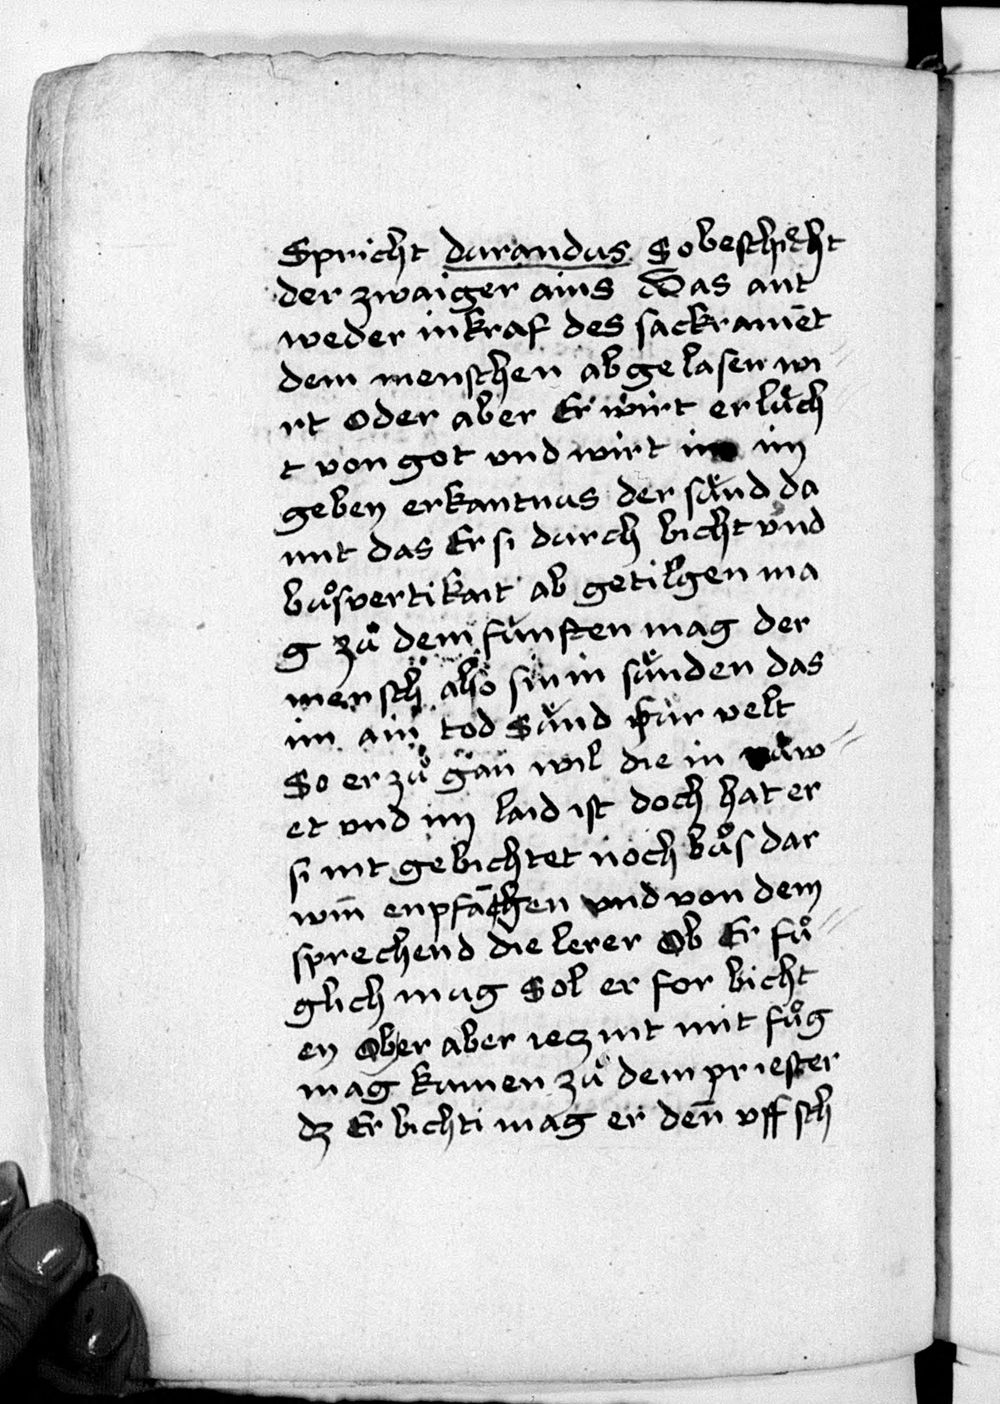 Spricht durandus So beschicht
der zwaiger ains Das ant
weder in kraf des sackramēt
dem menschen abgelasen wi
rt Oder aber Er wirt erlu̇ch
t von got vnd wirt im
geben erkantnus der su̇nd da
mit das Er si durch bicht vnd
bůsvertikait ab getilgen ma
g zů dem fu̇nften mag der
mensch also sin in su̇nden das
im ain tod Su̇nd für velt
So er zů gān wil die in ruw
et vnd im laid ist doch hat er
si nit gebichtet noch bůs dar
win̄ enpfāchen vnd von dem
sprechend die lerer Ob Er fů
glich mug Sol er for bicht
en Ob er aber iecz nit mit fůg
mag kumen zů dem priester
dz Er bichti mag er den̄ vff sch